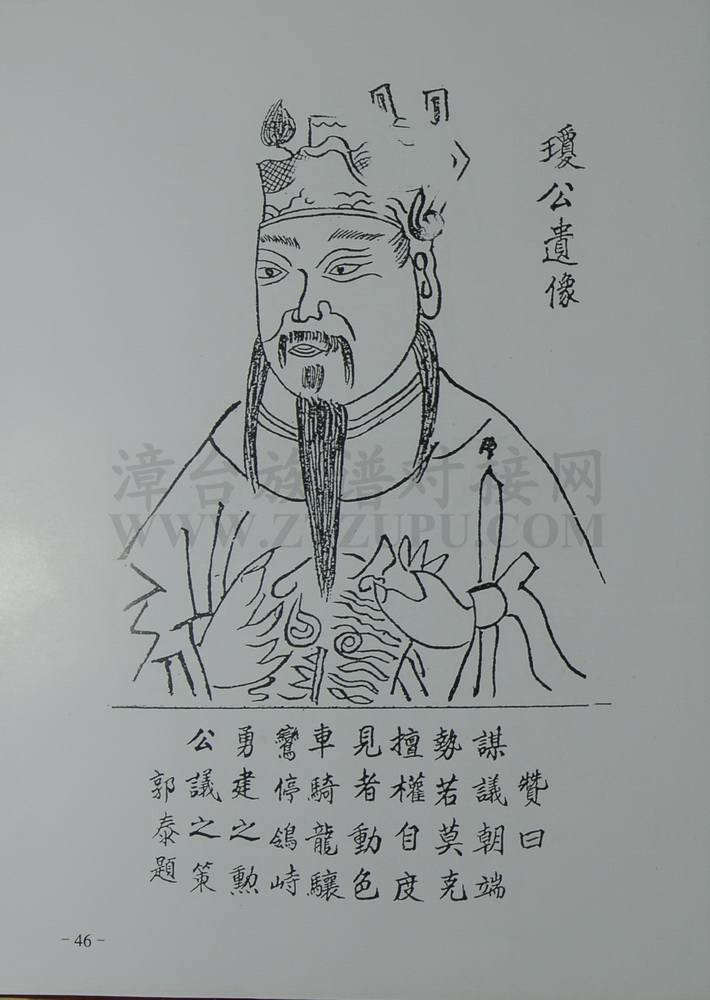 瓊公遺像
贊曰
謀議朝端
勢若莫克
擅權自度
見者動色
車騎龍驤
鸞停鵠峙
勇建之勲
公議之策
郭泰題
漳台族谱对接网
WWW.ZTZUPU.COM
-46-